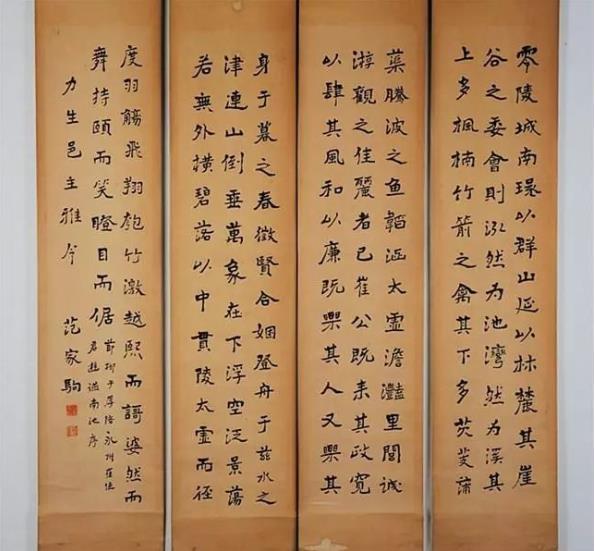 零陵城南環以群山延以林麓其崖
谷之委會則泓然为池灣然为溪其
上多楓楠竹箭之禽其下多芡芰蒲
蕖騰波之鱼韜涵太虛澹灩里閭誠
游觀之佳麗者已崔公既来其政寬
以肆其風和以廉既樂其人又樂其
身于暮之春徵賢合姻登舟于茲水之
津連山倒垂萬象在下浮空泛景蕩
若無外横碧落以中貫陵太虛而徑
度羽觴飛翔匏竹激越熙而謌婆然而
舞持頤而笑瞪目而倨
節柳子厚陪永州崔使
君遊讌南池序
力生邑主雅令 范家駒